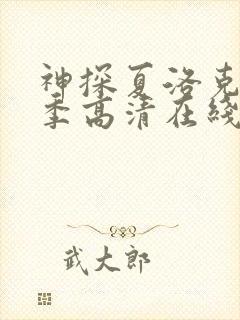 神探夏洛克
季高清在线
武大郎